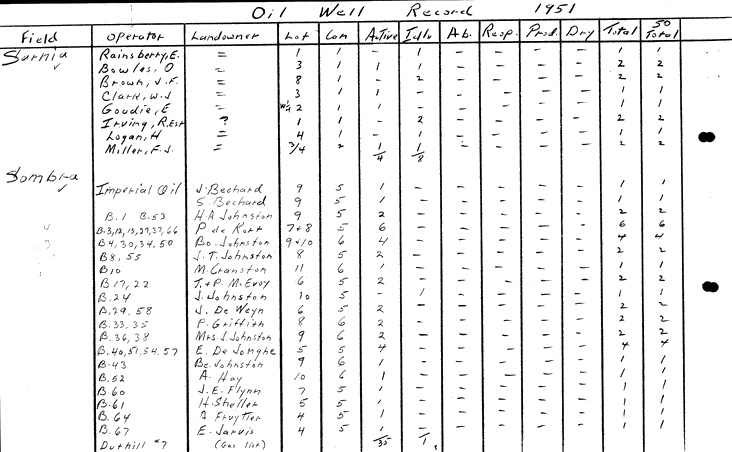 Oil Well Record 1951
Field Operator Landowner Lot Con Active Idle Ab. Resp. Prod. Dry Total 50 Total
Sarnia Rainsberry, E. = 1 1 - 1 - - - - 1 1
Bowles, O = 3 1 1 1 - - - - 2 2
Brown, J.F. = 8 1 - 2 - - - - 2 2
Clark, W.J = 3 1 1 - - - - - 1 1
Goudie, E = W½ 2 1 1 - - - - - 1 1
Irving, R. Est ? 1 1 - 2 - - - - 2 2
Logan, H = 4 1 - 1 - - - - 1 1
Miller, F.J. = 3/4 2 1 1 - - - - 2 2
4 8
Sombra
Imperial Oil J. Bechard 9 5 1 - - - - - 1 1
S. Bechard 9 5 1 - - - - - 1 1
B.1 B.53 H.A Johnston 9 5 2 - - - - - 2 2
B.3,12,13,27,37,66 P. de Kort 7+8 5 6 - - - - - 6 6
B4,30,34,50 Bo. Johnston 9+10 6 4 - - - - - 4 4
B8,55 J.T. Johnston 8 5 2 - - - - - 2 2
B10 M. Cranston 11 6 1 - - - - - 1 1
B17,22 T.+P. McEvoy 6 5 2 - - - - - 2 2
B.24 J. Johnston 10 5 - 1 - - - - 1 1
B.29,58 J. De Weyn 6 5 2 - - - - - 2 2
B.33,35 P. Griffith 8 6 2 - - - - - 2 2
B.36,38 Mrs J. Johnston 9 6 2 - - - - - 2 2
B.40,51,54,57 E. De Jonghe 5 5 4 - - - - - 4 4
B.43 Be. Johnston 9 6 1 - - - - - 1 1
B.52 A. Hay 10 6 1 - - - - - 1 1
B.60 J.E. Flynn 7 5 1 - - - - - 1 1
B.61 H. Sheller 5 5 1 - - - - - 1 1
B.64 Fruytier 4 5 1 - - - - - 1 1
B.67 E. Jarvis 4 5 1 - - - - - 1 1
Duthill #7 (Gas list) 35 1